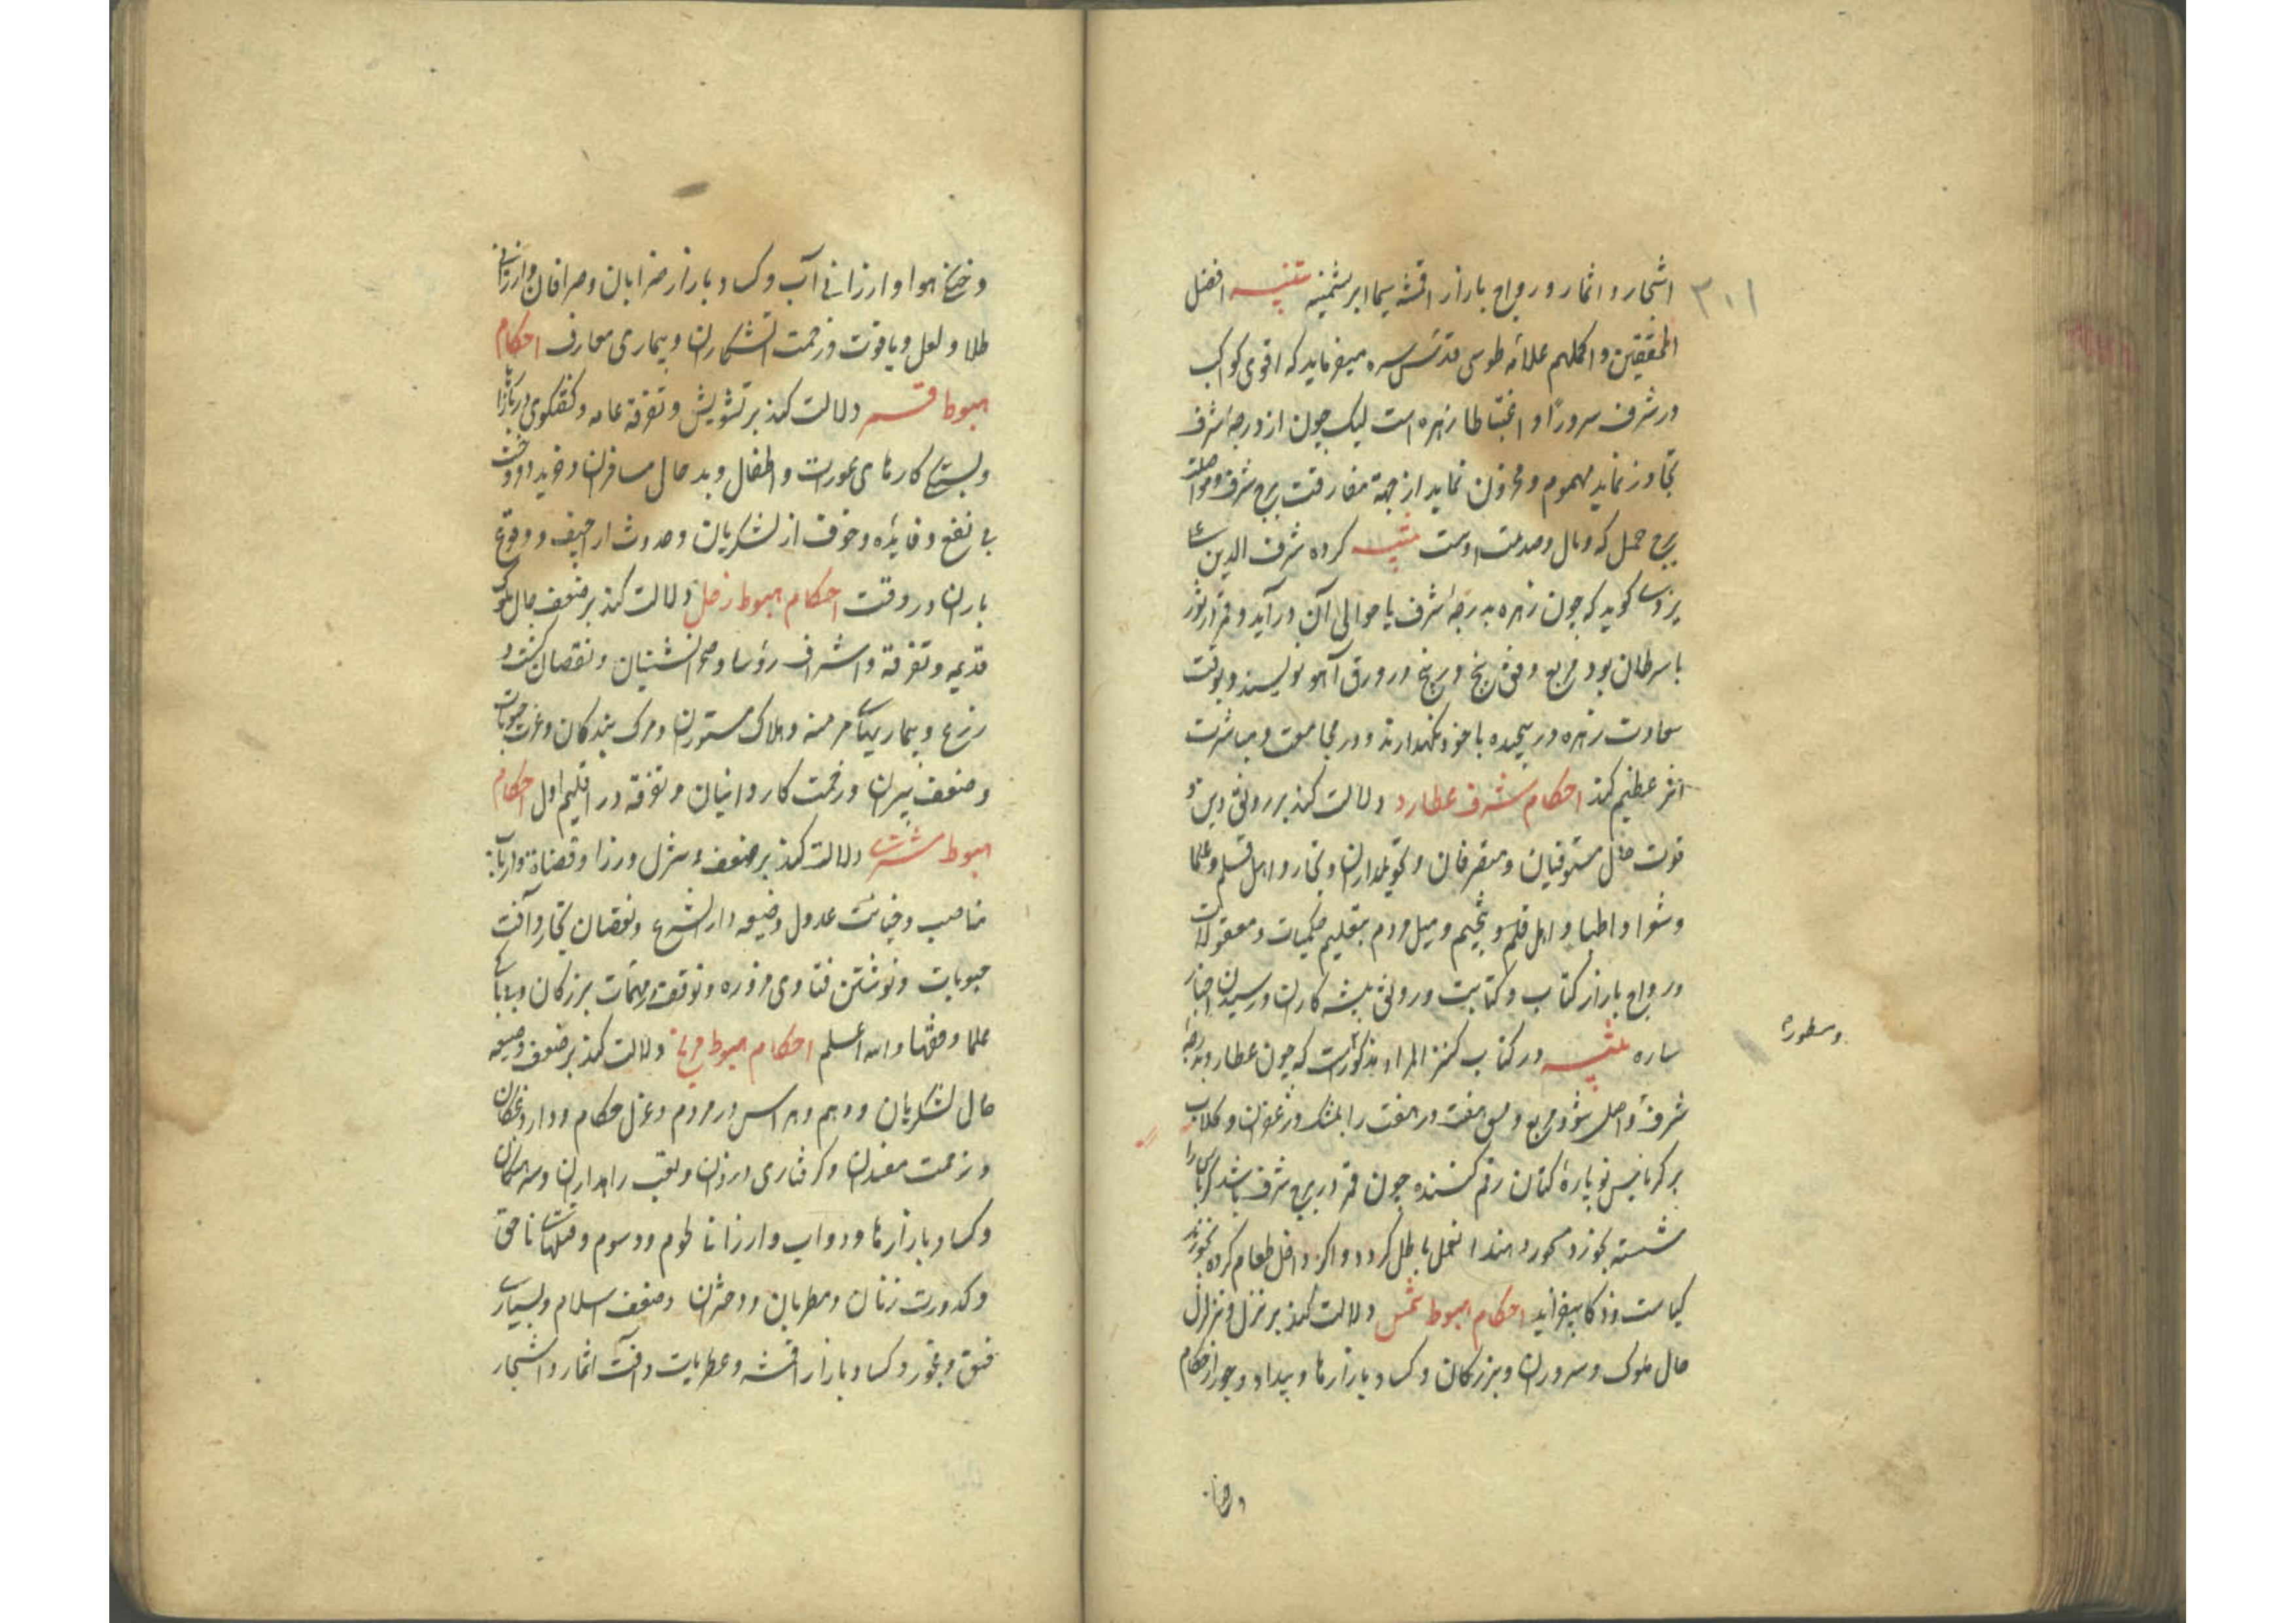 ۳۰۱
اشجار و اثمار و رواج بازار اقمشه سیما ابریشمینه تنبیه افضل
المحققین و اکملهم علامه طوسی قدس سره میفرماید که اقوی کواکب
در شرف سرورًا و اغتباطا زهره است لیک چون از درجه شرف
تجاوز نماید مهموم و محزون نماید از جهة مفارقت برج شرف و مواصلت
برج حمل که وبال و صدمت اوست تنبیه کرده شرف الدین علی
یزدی گوید که چون زهره بدرجه شرف یا حوالی آن درآید و قمر در ثور
یا سرطان بود مربع وفق پنج در پنج در ورق آهو نویسند و بوقت
سعادت زهره در پیچیده با خود نگهدارند و در مجامعت و مباشرت
اثر عظیم کند احکام شرف عطارد دلالت کند بر رونق دین و
قوت حال مستوفیان و متصرفان و تحویلداران و تجار و اهل قلم و علما
و شعرا و اطبا و اهل قلم و تنجیم و میل مردم بتعلیم حکمیات و معقولات
و رواج بازار کتاب و کتابت و رونق پیشه کاران و رسیدن اخبار
ساره تنبیه در کتاب کنز المراد مذکورست که چون عطارد بدرجه
شرف واصل شود مربع وفق هفت در هفت را بمشک و زعفران و گلاب
بر کرباس نو پارهٔ کتان رقم کشنده چون قمر در برج شرف باشد کرباس را
شسته بخورد محرورمند العمل باطل گردد و اگر داخل طعام کرده بخورند
کیاست و ذکا بیفزاید احکام هبوط شمس دلالت کند بر تنزل و تزلزل
حال ملوک و سروران و بزرگان و کساد بازارها و بیداد و جور از حکام
و سطوره
و خنکی هوا و ارزانی آب و کساد بازار ضرابان و صرافان و ارزانی
طلا و لعل و یاقوت و زحمت آتشکاران و بیماری معارف احکام
هبوط قمر دلالت کند بر تشویش و تفرقه عامه و گفتگوی در بازارها
و بستگی کارهای عورات و اطفال و بد حال مسافران و خرید و فروخت
بی نفع و فایده و خوف از لشکریان و حدوث اراجیف و وقوع
باران در وقت احکام هبوط زحل دلالت کند بر ضعف حال ملوک
قدیمه و تفرقه و اشراف رؤسا و صحرانشینان و نقصان کشت و
زرع و بیماریهای مزمنه و هلاک مستوران و مرگ بندگان و عزت حبوبات
و ضعف پیران و زحمت کاروانیان و تفرقه در اقلیم اول احکام
هبوط مشتری دلالت کند بر ضعف و عزل وزرا و قضاة و ارباب
مناصب و خیانت عدول و ضیعه دار الشرع و نقصان تجار و آفت
حبوبات و نوشتن فتاوی مزوره و توقف در مهمات بزرگان و بدبابی
علما و فقها و الله اعلم احکام هبوط مریخ دلالت کند بر ضعف و ضیعه
حال لشکریان و وهم و هراس در مردم و عزل حکام و داروغگان
و زحمت مفسدان و گرفتاری دزدان و تعب راهداران و سرهنگان
و کساد بازارها و دواب و ارزانی لحوم و دسوم و قتلهای ناحق
و کدورت زنان و مطربان و دختران و ضعف اسلام و بسیاری
فسق و فجور و کساد بازار اقمشه و عطریات و آفت اثمار و اشجار